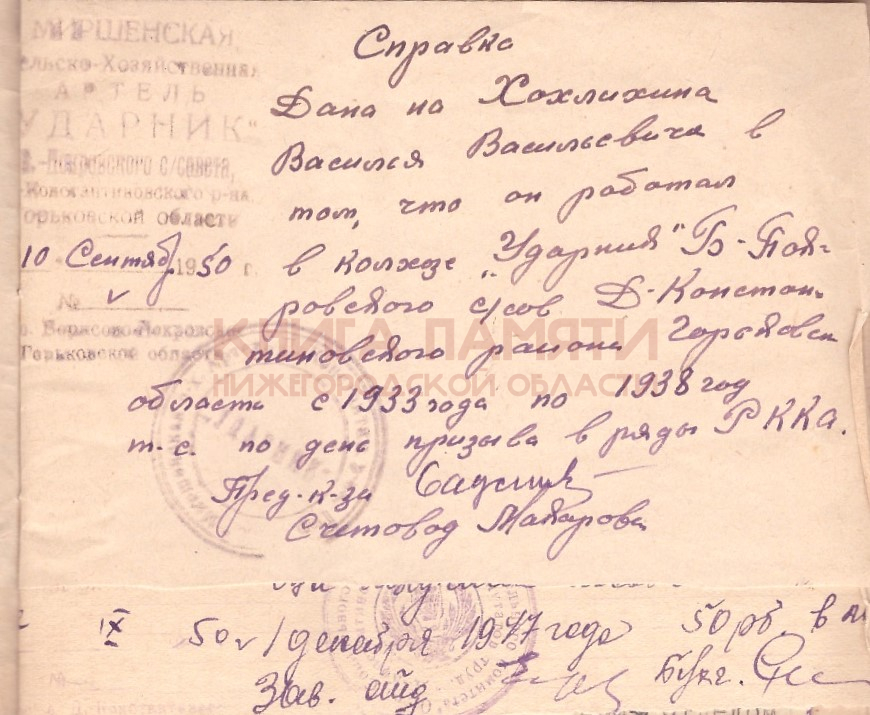 МИРШЕНСКАЯ
ельско-Хозяйственная
АРТЕЛЬ
УДАРНИК"
Б.-Покровского с/совета,
-Константиновского р-на
орьковской области
10 Сентяб. 1950 г.
№
Борисово-Покровское
Горьковской област
Справка
Дана на Хохлихина
Василия Васильевича в
том, что он работал
в колхозе „Ударник" Б-Пок-
ровского с/сов Д-Констан-
тиновского района Горьковск
области с 1933 года по 1938 год
т-с. по день призыва в ряды РККА.
Пред-к-за
Счетовод Макарова
КНИГА ПАМЯТИ
НИЖЕГОРОДСКОЙ ОБЛАСТИ
IX 50 1 декабря 1947 года 50 рб. в
Зав. Бухг.
№